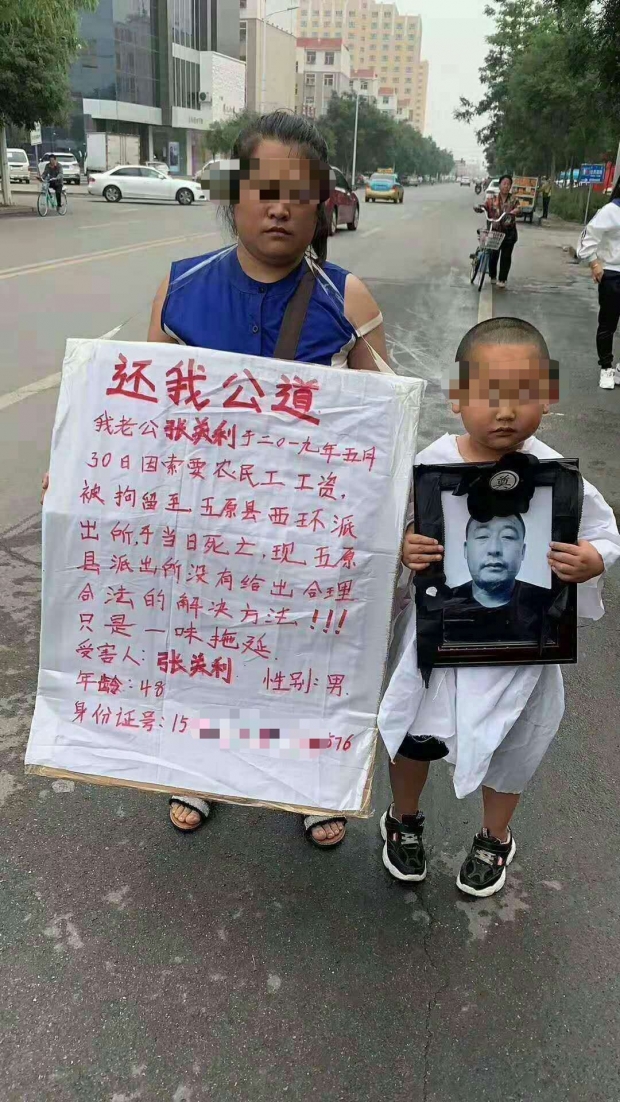 还我公道
我老公张英利于二〇一九年五月
30日因索要农民工工资,
被拘留至五原县西环派
出所,于当日死亡,现五原
县派出所没有给出合理
合法的解决方法!!!
只是一味拖延.
受害人:张英利
性别:男.
年龄:48
身份证号:15
576
奠